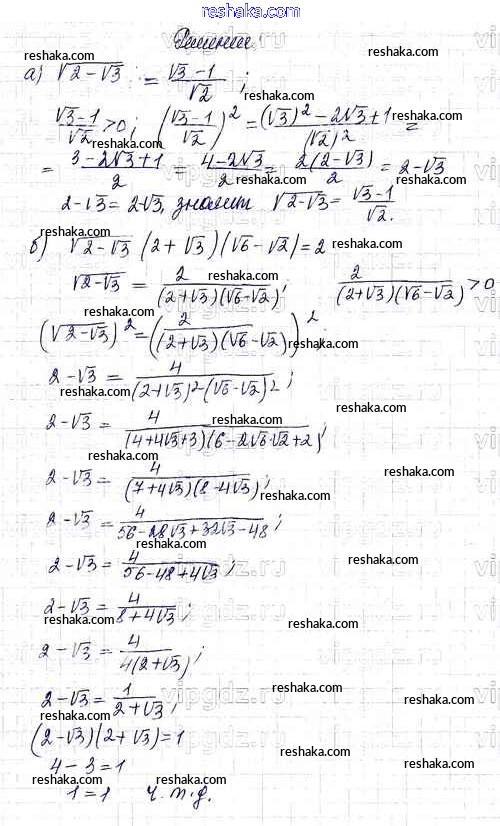 www.reshaka.com
Решение.
а) √(2-√3) = (√3-1)/√2;
(√3-1)/√2 > 0; ((√3-1)/√2)² = ((√3)²-2√3+1)/(√2)² =
= (3-2√3+1)/2 = (4-2√3)/2 = 2(2-√3)/2 = 2-√3
2-√3 = 2-√3, значит √(2-√3) = (√3-1)/√2.
б) √(2-√3) (2+√3)(√6-√2) = 2
√(2-√3) = 2/((2+√3)(√6-√2)); 2/((2+√3)(√6-√2)) > 0
(√(2-√3))² = (2/((2+√3)(√6-√2)))²;
2-√3 = 4/((2+√3)²-(√6-√2)²);
2-√3 = 4/((4+4√3+3)(6-2√6·√2+2));
2-√3 = 4/((7+4√3)(8-4√3));
2-√3 = 4/(56-28√3+32√3-48);
2-√3 = 4/(56-48+4√3);
2-√3 = 4/(8+4√3);
2-√3 = 4/(4(2+√3));
2-√3 = 1/(2+√3);
(2-√3)(2+√3)=1
4-3=1
1=1 ч.т.д.